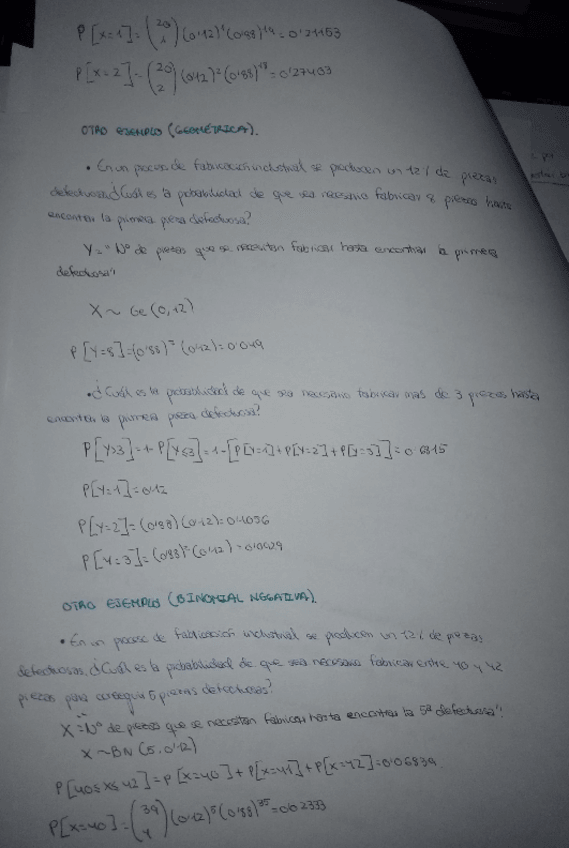 P[x=1]=(20 1)(0'12)¹(0'88)¹⁹=0'21153
P[x=2]=(20 2)(0'12)²(0'88)¹⁸=0'27403
OTRO EJEMPLO (GEOMÉTRICA).
• En un proceso de fabricación industrial se producen un 12% de piezas
defectuosas. ¿Cuál es la probabilidad de que sea necesario fabricar 8 piezas hasta
encontrar la primera pieza defectuosa?
Y="Nº de piezas que se necesitan fabricar hasta encontrar la primera
defectuosa"
X ~ Ge (0,12)
P[Y=8]=(0'88)⁷(0'12)=0'049
• ¿Cuál es la probabilidad de que sea necesario fabricar más de 3 piezas hasta
encontrar la primera pieza defectuosa?
P[Y>3]=1-P[Y≤3]=1-[P[Y=1]+P[Y=2]+P[Y=3]]=0'6815
P[Y=1]=0'12
P[Y=2]=(0'88)(0'12)=0'1056
P[Y=3]=(0'88)²(0'12)=0'0929
OTRO EJEMPLO (BINOMIAL NEGATIVA).
• En un proceso de fabricación industrial se producen un 12% de piezas
defectuosas. ¿Cuál es la probabilidad de que sea necesario fabricar entre 40 y 42
piezas para conseguir 5 piezas defectuosas?
X="Nº de piezas que se necesitan fabricar hasta encontrar la 5ª defectuosa".
X ~ BN (5, 0'12)
P[40≤X≤42]=P[X=40]+P[X=41]+P[X=42]=0'06839
P[X=40]=(39 4)(0'12)⁵(0'88)³⁵=0'02333